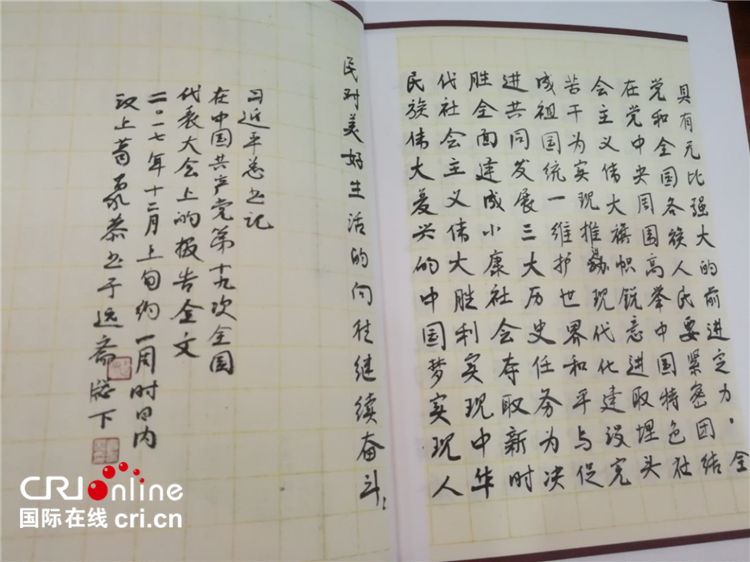 具有无比强大的前进定力。全
党和全国各族人民要紧密团结
在党中央周围高举中国特色社
会主义伟大旗帜锐意进取埋头
苦干为实现推进现代化建设完
成祖国统一维护世界和平与促
进共同发展三大历史任务为决
胜全面建成小康社会夺取新时
代社会主义伟大胜利实现中华
民族伟大复兴的中国梦实现人
民对美好生活的向往继续奋斗
习近平总书记
在中国共产党第十九次全国
代表大会上的报告全文
二〇一七年十二月上旬约一周时日内
汶上书于远斋下
CRIonline
国际在线 cri.cn